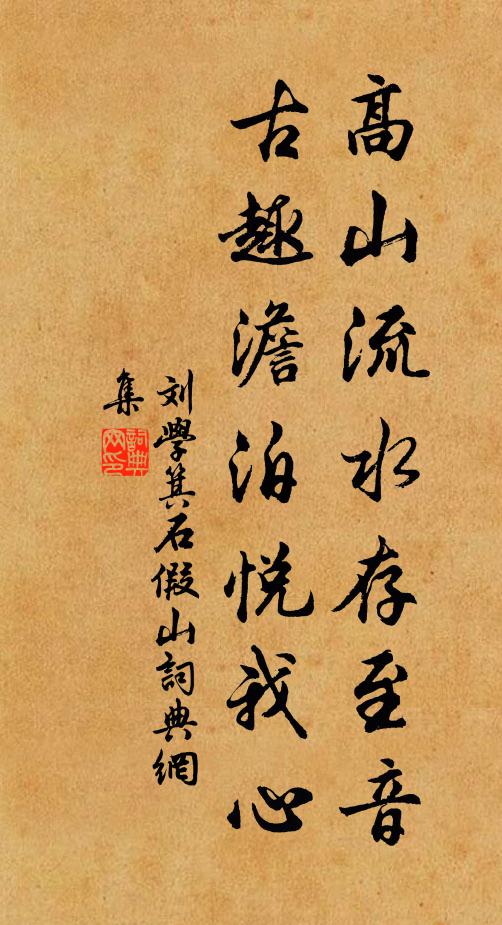 高山流水存至音
古趣澹泊悦我心
刘學箕石假山詞典網
集
詞典網印